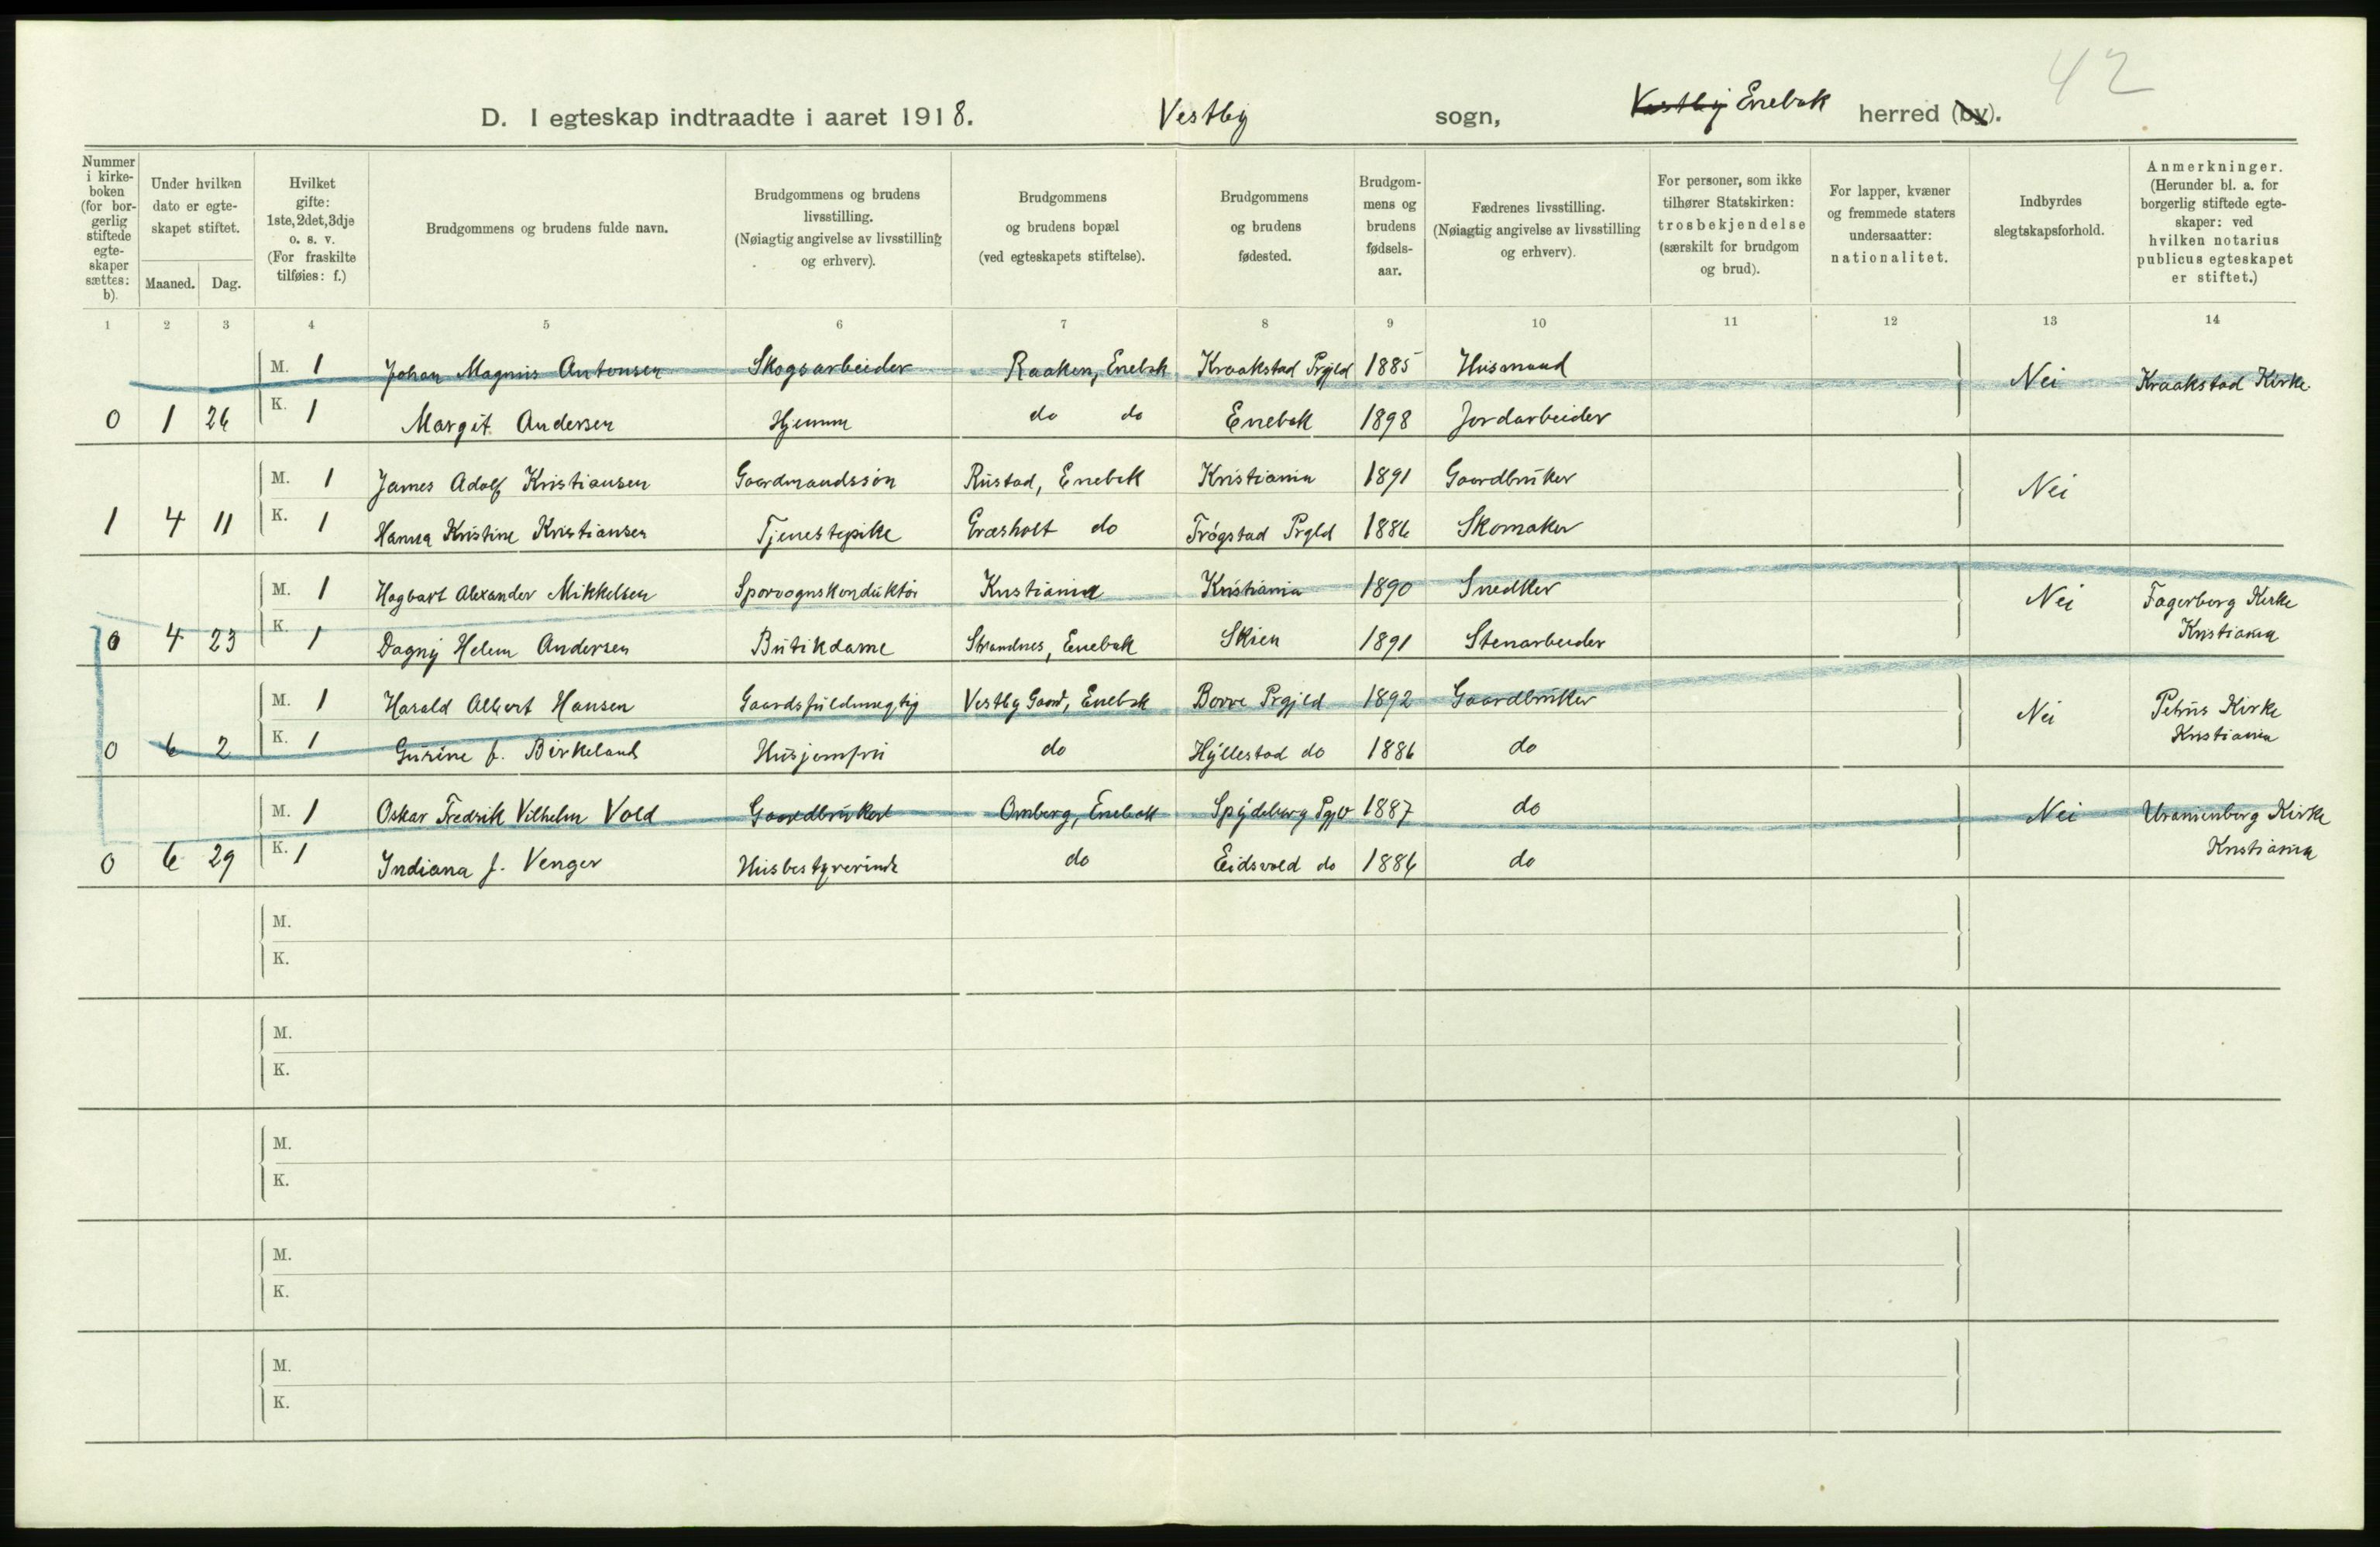 42
D. I egteskap indtraadte i aaret 1918. Vestby sogn, Vestby Enebak herred (by).
Nummer i kirkeboken (for borgerlig stiftede egteskaper sættes: b).
Under hvilken dato er egteskapet stiftet.
Maaned. Dag.
Hvilket gifte: 1ste, 2det, 3dje o. s. v. (For fraskilte tilføies: f.)
Brudgommens og brudens fulde navn.
Brudgommens og brudens livsstilling. (Nøiagtig angivelse av livsstilling og erhverv).
Brudgommens og brudens bopæl (ved egteskapets stiftelse).
Brudgommens og brudens fødested.
Brudgommens og brudens fødselsaar.
Fædrenes livsstilling. (Nøiagtig angivelse av livsstilling og erhverv).
For personer, som ikke tilhører Statskirken: trosbekjendelse (særskilt for brudgom og brud).
For lapper, kvæner og fremmede staters undersaatter: nationalitet.
Indbyrdes slegtskapsforhold.
Anmerkninger. (Herunder bl. a. for borgerlig stiftede egteskaper: ved hvilken notarius publicus egteskapet er stiftet.)
1 2 3 4 5 6 7 8 9 10 11 12 13 14
M. 1 Johan Magnus Antonsen Skogsarbeider Raaken, Enebak Kraakstad Prgjld 1885 Husmand Nei Kraakstad Kirke
0 1 26 K. 1 Margit Andersen Hjemme do do Enebak 1898 Jordarbeider
M. 1 James Adolf Kristiansen Gaardmandssøn Rustad, Enebak Kristiania 1891 Gaardbruker Nei
1 4 11 K. 1 Hanna Kristine Kristiansen Tjenestepike Græsholt do Trøgstad Prgld 1886 Skomaker
M. 1 Hagbart Alexander Mikkelsen Sporvognskonduktør Kristiania Kristiania 1890 Snedker Nei Fagerborg Kirke
0 4 23 K. 1 Dagny Helene Andersen Butikdame Strandnes, Enebak Skien 1891 Stenarbeider Kristiania
M. 1 Harald Albert Hansen Gaardsfuldmegtig Vestby Gaard, Enebak Borre Prgjld 1892 Gaardbruker Nei Petrus Kirke
0 6 2 K. 1 Gurine f. Birkeland Husjomfru do Hyllestad do 1886 do Kristiania
M. 1 Oskar Fredrik Vilhelm Vold Gaardbruker Omberg, Enebak Spydeberg Pgjd 1887 do Nei Uranienborg Kirke
0 6 29 K. 1 Indiana f. Venger Husbestyrerinde do Eidsvold do 1886 do Kristiania
M.
K.
M.
K.
M.
K.
M.
K.
M.
K.